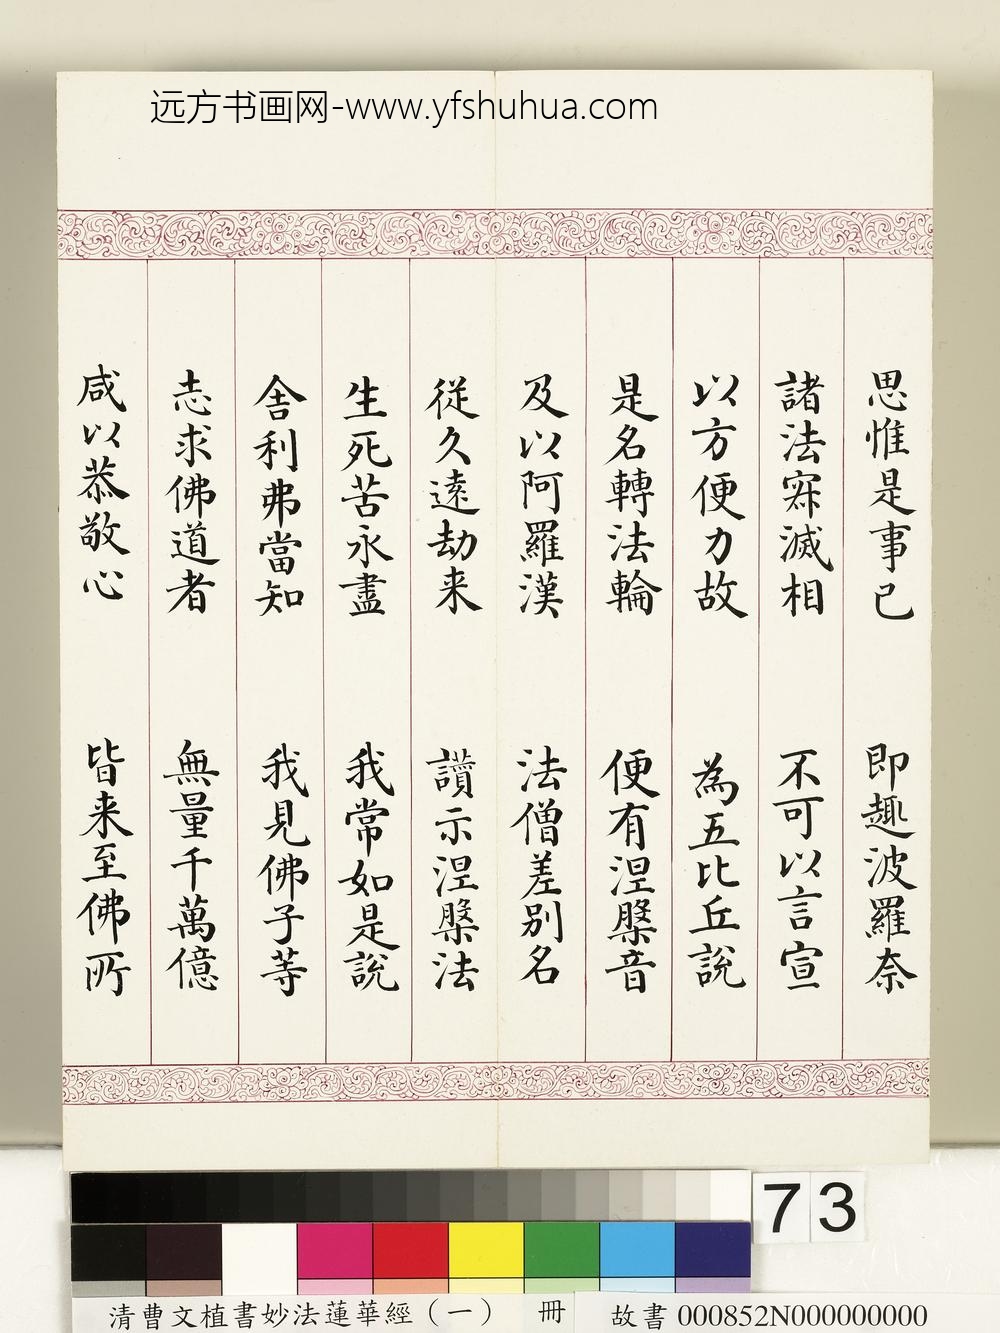 远方书画网-www.yfshuhua.com
思惟是事已 即趣波羅奈
諸法寂滅相 不可以言宣
以方便力故 為五比丘說
是名轉法輪 便有涅槃音
及以阿羅漢 法僧差別名
從久遠劫来 讚示涅槃法
生死苦永盡 我常如是說
舍利弗當知 我見佛子等
志求佛道者 無量千萬億
咸以恭敬心 皆来至佛所
73
清曹文植書妙法蓮華經（一） 冊 故書 000852N000000000